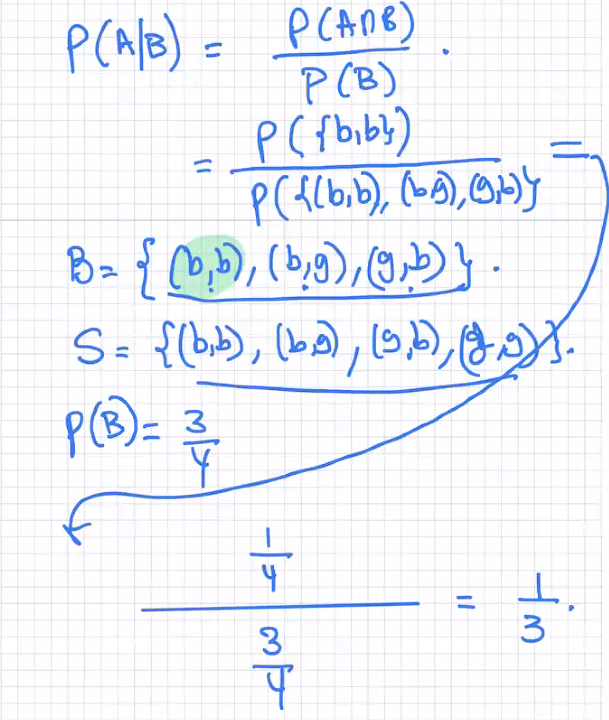 P(A|B) = P(A∩B) / P(B) .
= P({b,b}) / P({(b,b), (b,g), (g,b)} =
B = { (b,b), (b,g), (g,b) } .
S = {(b,b), (b,g), (g,b), (g,g)}.
P(B) = 3/4
1/4 / 3/4 = 1/3 .